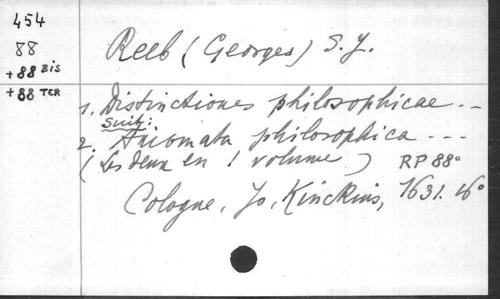 454
88
+88 BIS
+88 TER
Reeb (Georges) S.J.
1. Distinctiones philosophicae ...
Suit:
2. Axiomata philosophica ...
(Les deux en 1 volume) RP 88°
Cologne, Jo, Kinckius, 1631. 16°